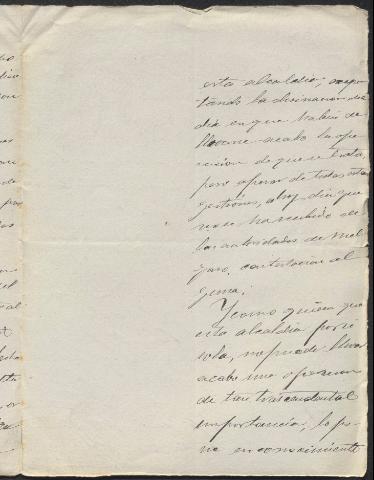 esta alcaldia, supli
tando la desinacion del
dia en que habia de
llevarse acabo la ope
racion de que se trata,
pero apesar de todas estas
gestiones, aloy dia que
nose ha recibido de
las autoridades de Mel
gaso, contestacion al
guna.
Y como quiera que
esta alcaldia por si
sola, no puede llevar
acabo una operacion
de tan trascendental
importancia, lo po
ne en conocimiento